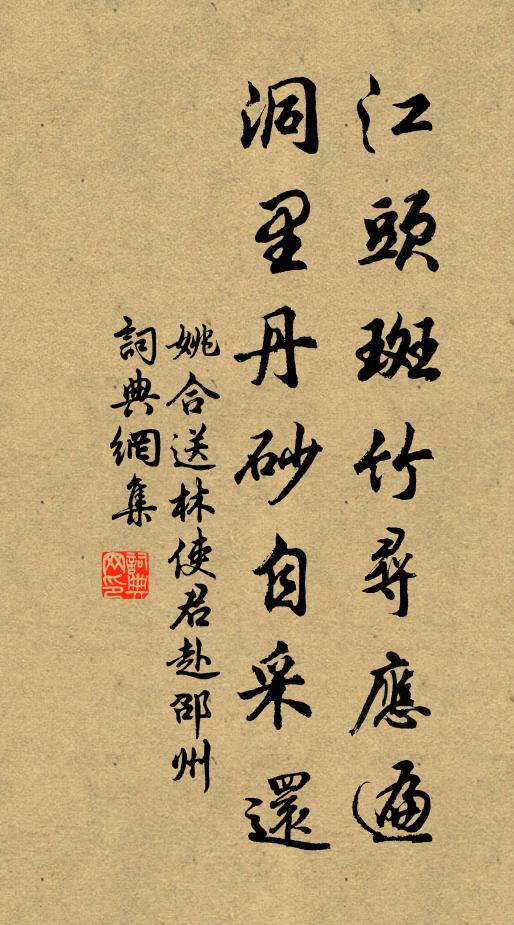 江頭斑竹尋應遍
洞里丹砂自采還
姚合送林使君赴邵州
詞典網集
詞典
網印